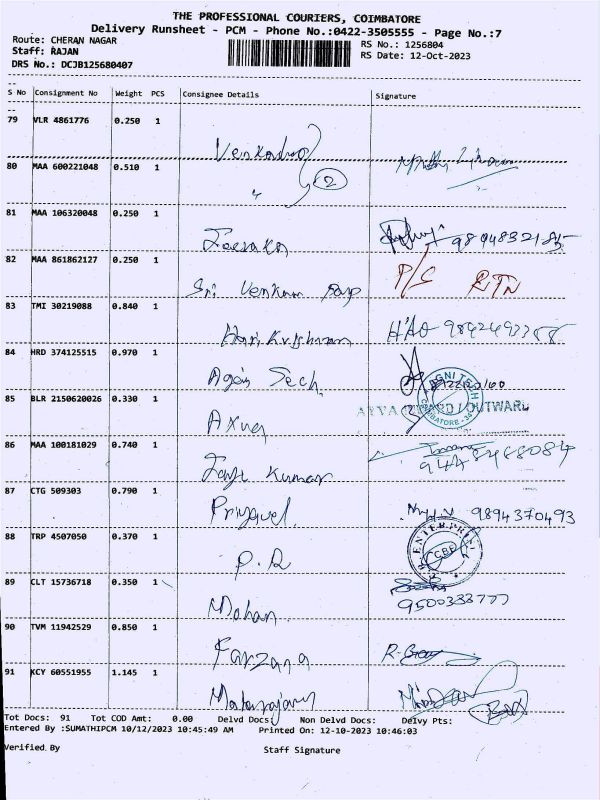 THE PROFESSIONAL COURIERS, COIMBATORE
Delivery Runsheet - PCM - Phone No.:0422-3505555 - Page No.:7
Route: CHERAN NAGAR RS No.: 1256804
Staff: RAJAN RS Date: 12-Oct-2023
DRS No.: DCJB125680407
S No Consignment No Weight PCS Consignee Details Signature
79 VLR 4861776 0.250 1
80 MAA 600221048 0.510 1 2
81 MAA 106320048 0.250 1
82 MAA 861862127 0.250 1 Sri P/C RTN
83 TMI 30219088 0.840 1 Hari Krishnan
84 HRD 374125515 0.970 1
85 BLR 2150620026 0.330 1
86 MAA 100181029 0.740 1 Kumar
87 CTG 509303 0.790 1 9894370493
88 TRP 4507050 0.370 1 P.R
89 CLT 15736718 0.350 1 Mohan 9500333777
90 TVM 11942529 0.850 1 Farzana
91 KCY 60551955 1.145 1
Tot Docs: 91 Tot COD Amt: 0.00 Delvd Docs: Non Delvd Docs: Delvy Pts:
Entered By :SUMATHIPCM 10/12/2023 10:45:49 AM Printed On: 12-10-2023 10:46:03
Verified By Staff Signature